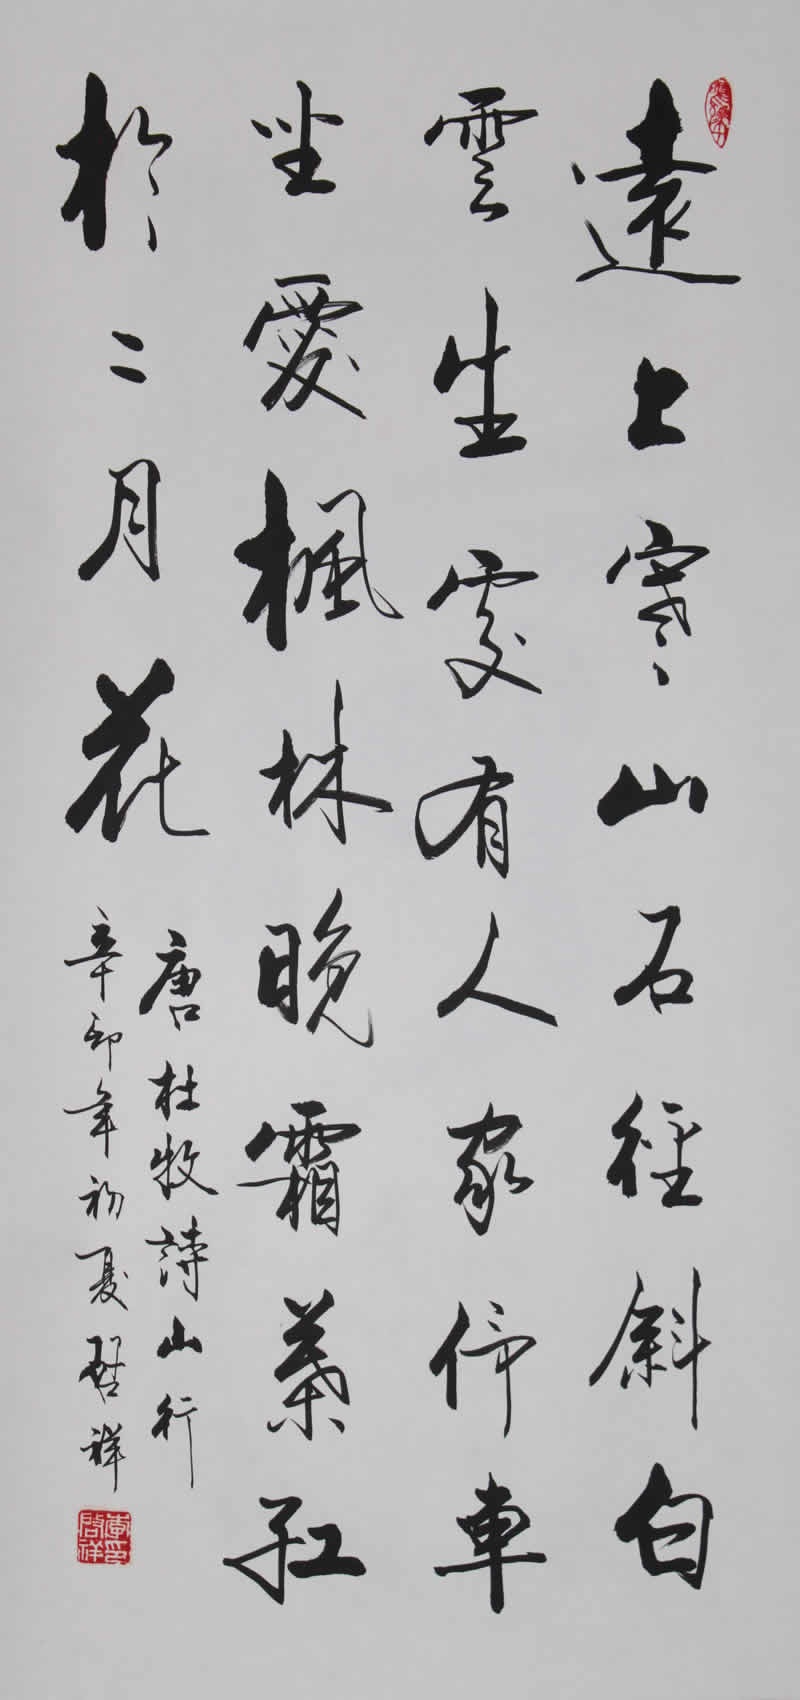 遠上寒山石徑斜白
雲生處有人家停車
坐愛楓林晚霜葉紅
於二月花
唐杜牧詩山行
辛卯年初夏啓祥